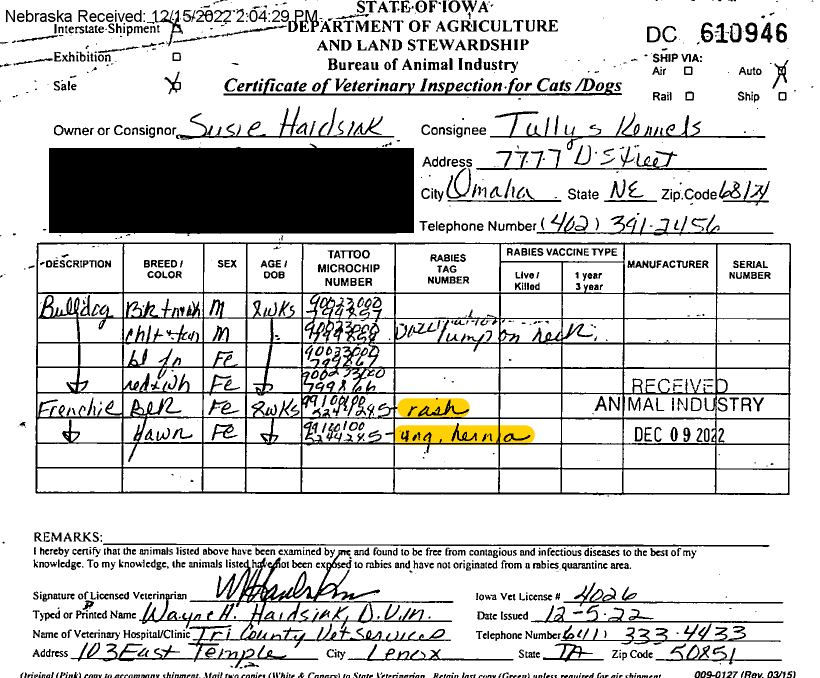 Nebraska Received: 12/15/2022 2:04:29 PM
STATE OF IOWA
Interstate Shipment
DEPARTMENT OF AGRICULTURE
AND LAND STEWARDSHIP
DC 610946
Exhibition
Bureau of Animal Industry
SHIP VIA:
Air Auto
Sale
Certificate of Veterinary Inspection for Cats /Dogs
Rail Ship
Owner or Consignor Susie Hardsink
Consignee Tully's Kennels
Address 7777 D Street
City Omaha State NE Zip Code
Telephone Number (402) 391-2456
DESCRIPTION BREED / COLOR SEX AGE / DOB TATTOO MICROCHIP NUMBER RABIES TAG NUMBER RABIES VACCINE TYPE MANUFACTURER SERIAL NUMBER
Live / Killed 1 year 3 year
Bulldog M 8wks
M lump on neck
bl fn Fe
red+wh Fe
RECEIVED
Frenchie BLK Fe 8wks rash
ANIMAL INDUSTRY
fawn Fe umg. hernia
DEC 09 2022
REMARKS:
I hereby certify that the animals listed above have been examined by me and found to be free from contagious and infectious diseases to the best of my
knowledge. To my knowledge, the animals listed have not been exposed to rabies and have not originated from a rabies quarantine area.
Signature of Licensed Veterinarian
Iowa Vet License # 4026
Typed or Printed Name Wayne H. Hardsink, D.V.M.
Date Issued 12-5-22
Name of Veterinary Hospital/Clinic Tri County Vet Services
Telephone Number (641) 333-4433
Address 103 East Temple City Lenox State IA Zip Code 50851
Original (Pink) copy to accompany shipment. Mail two copies (White & Canary) to State Veterinarian. Retain last copy (Green) unless required for air shipment.
009-0127 (Rev. 03/15)